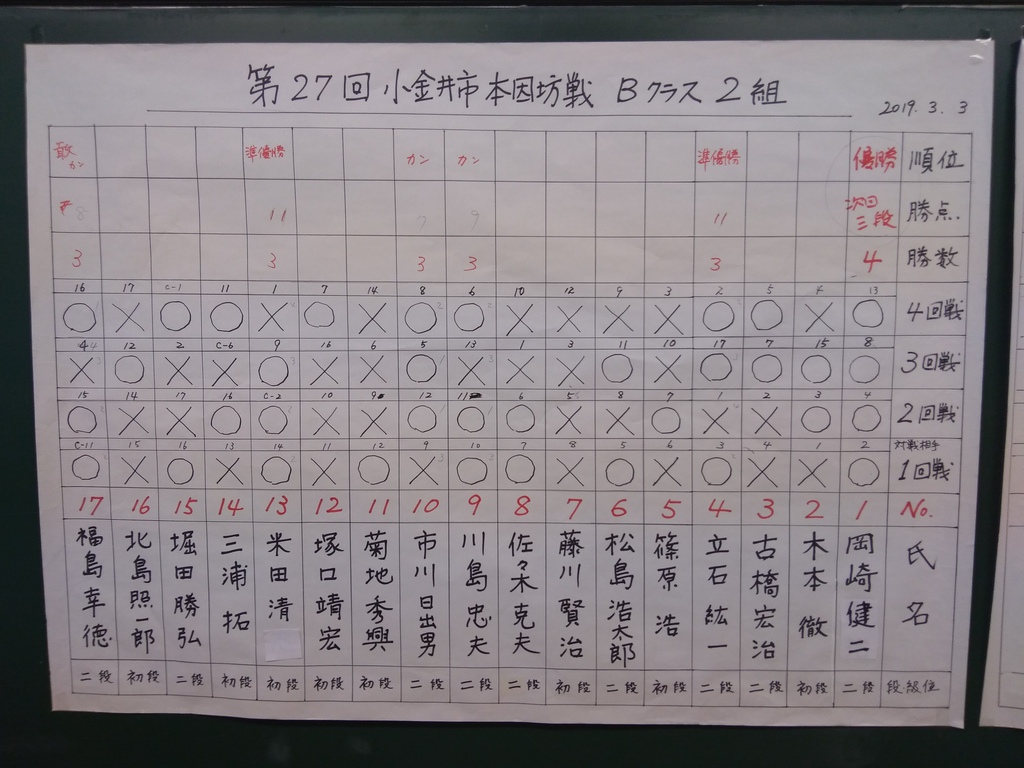 第27回 小金井市本因坊戦 Bクラス 2組
2019. 3. 3
敢カン 準優勝 カン カン 準優勝 優勝 順位
8 11 7 9 11 次回三段 勝点.
3 3 3 3 3 4 勝数
16 17 C-1 11 1 7 14 8 6 10 12 9 3 2 5 4 13
○ × ○ ○ × ○ × ○ ○ × × × × ○ ○ × ○ 4回戦
4 12 2 C-6 9 16 6 5 13 1 3 11 10 17 7 15 8
× ○ × × ○ × × ○ × × × ○ × ○ ○ ○ ○ 3回戦
15 14 17 16 C-2 10 9 12 11 6 5 8 7 1 2 3 4
○ × × ○ ○ × × ○ ○ ○ × × ○ × × ○ ○ 2回戦
C-11 15 16 13 14 11 12 9 10 7 8 5 6 3 4 1 2 対戦相手
○ × ○ × ○ × ○ × ○ ○ × ○ × ○ × × ○ 1回戦
17 16 15 14 13 12 11 10 9 8 7 6 5 4 3 2 1 No.
福島幸徳 北島照一郎 堀田勝弘 三浦拓 米田清 塚口靖宏 菊地秀興 市川日出男 川島忠夫 佐々木克夫 藤川賢治 松島浩太郎 篠原浩 立石紘一 古橋宏治 木本徹 岡崎健二 氏名
二段 初段 二段 初段 初段 初段 初段 二段 二段 二段 初段 二段 初段 二段 二段 初段 二段 段・級位